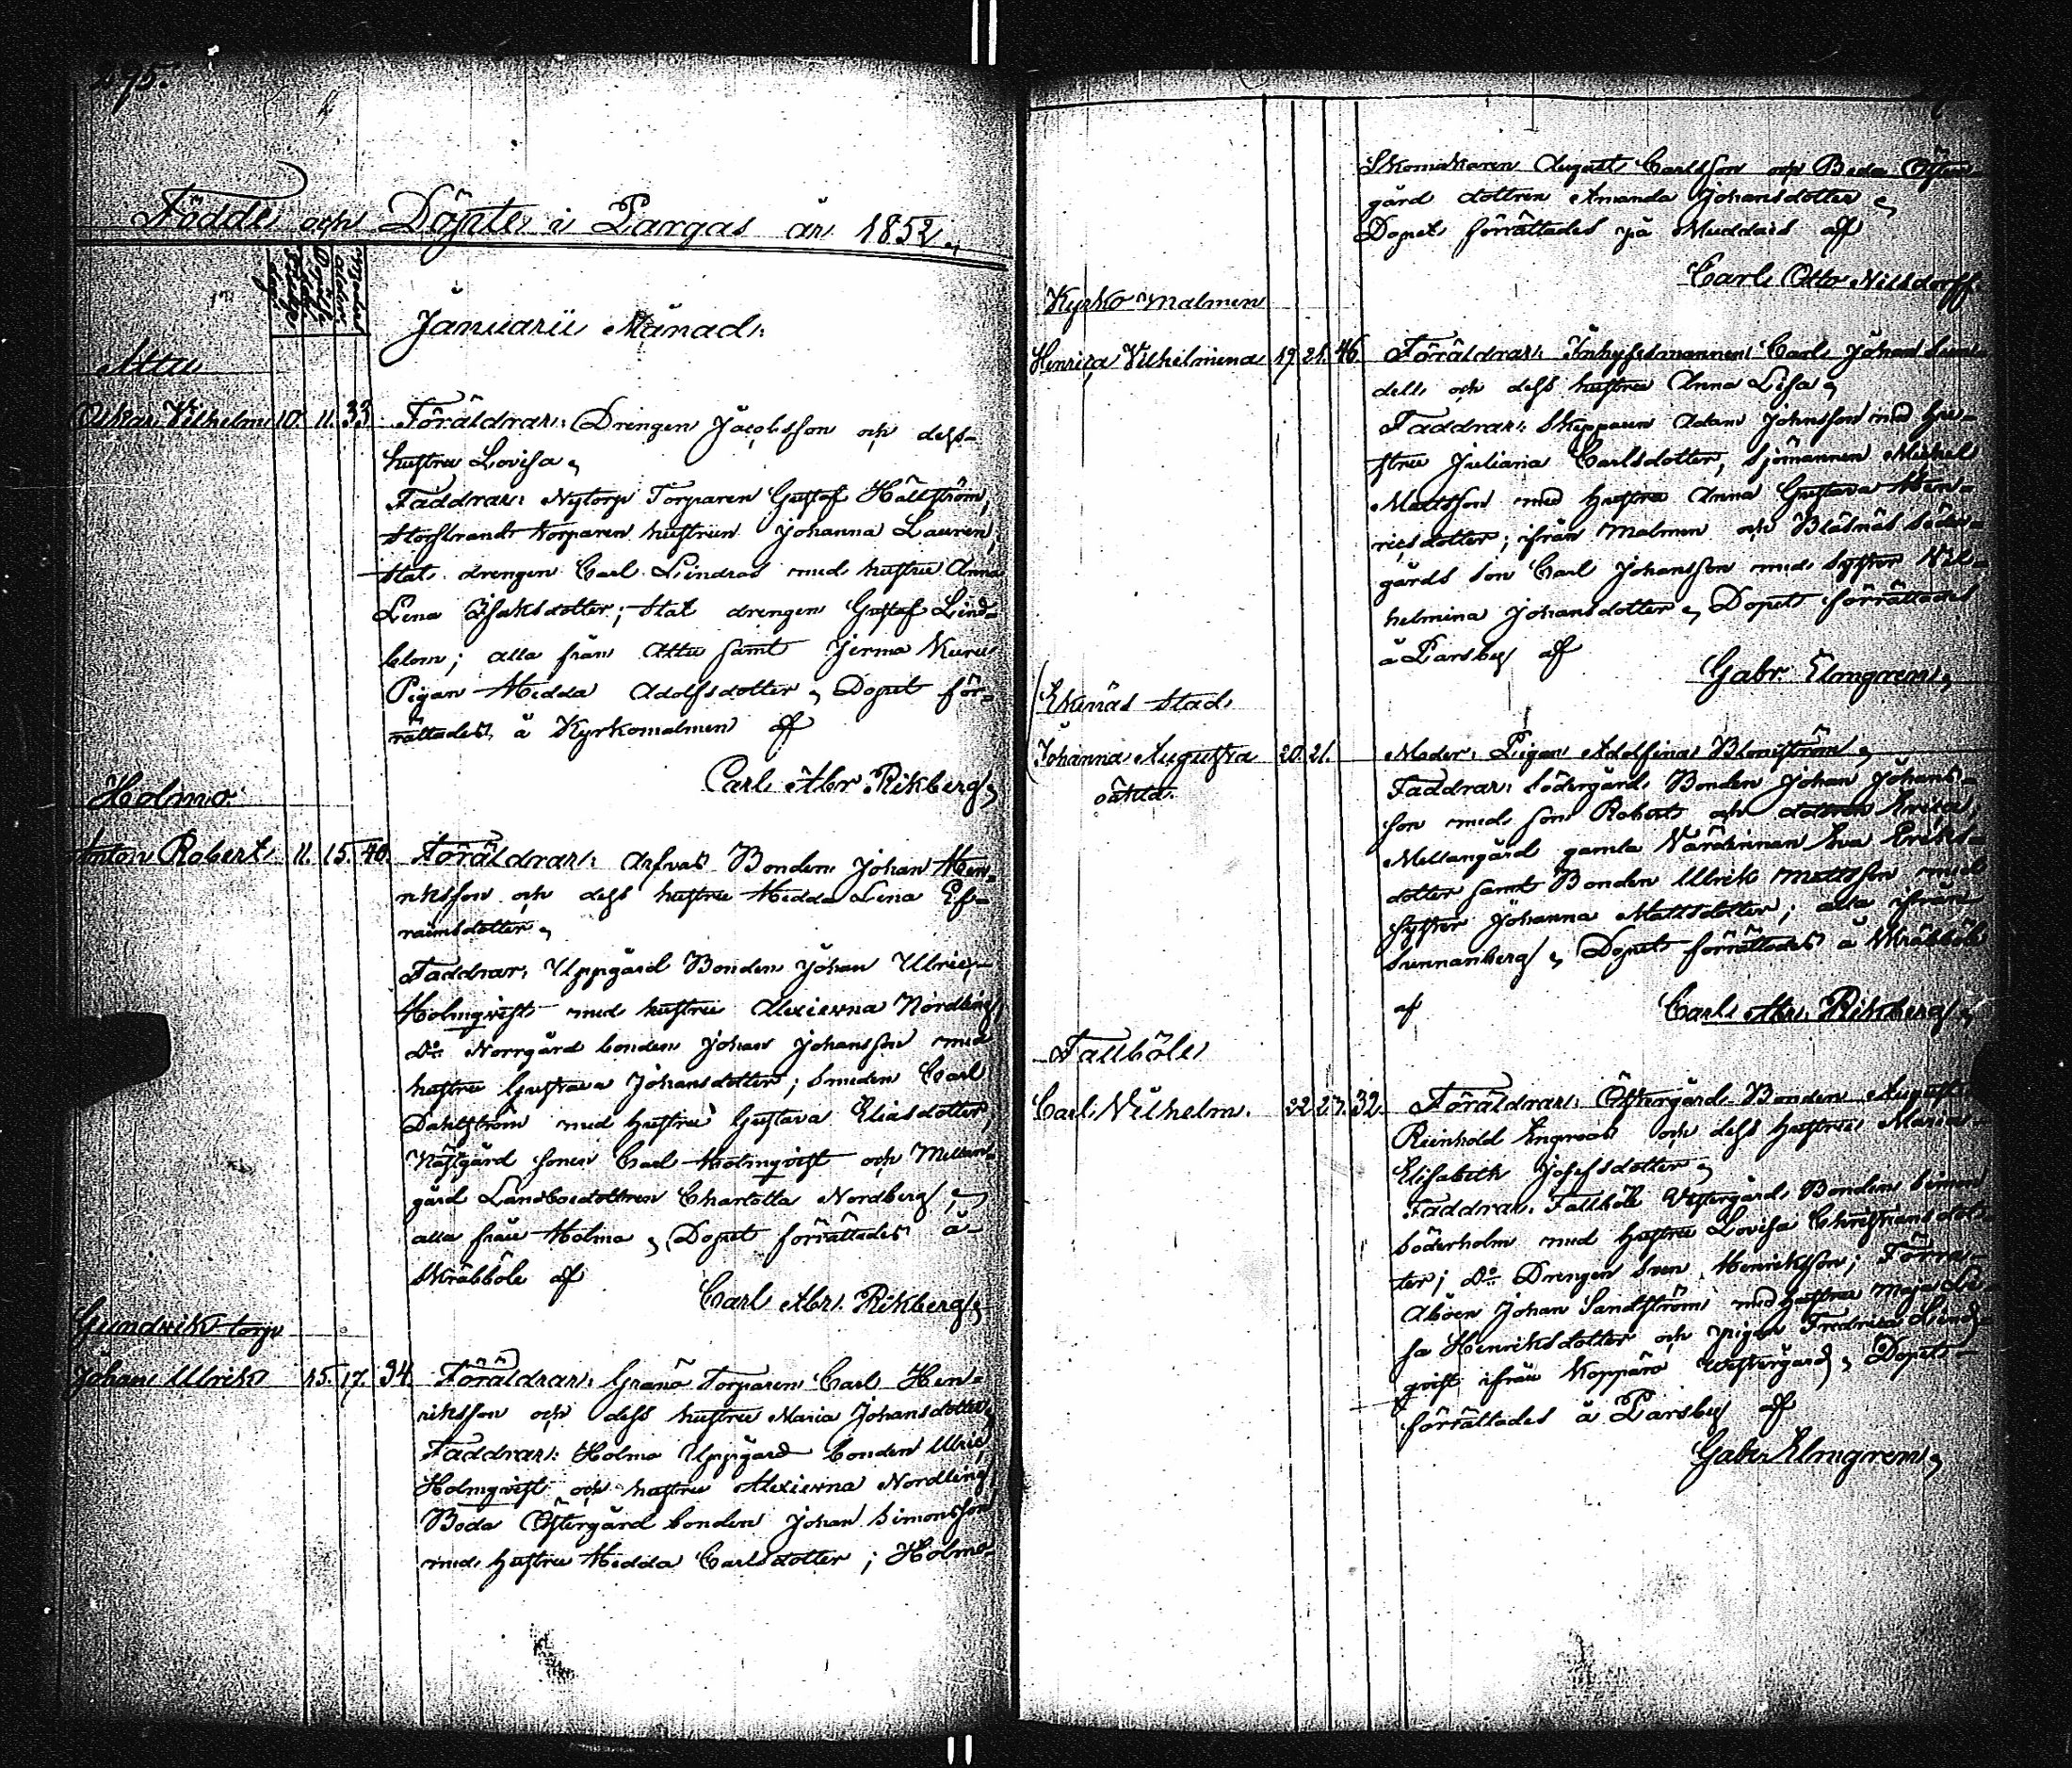 295.
Födde och Döpte i Pargas år 1852.
Januarii Månad.
Attu
Oskar Vilhelm 10. 11. 33. Föräldrar: Drengen Jacobsson och dess
hustru Lovisa.
Faddrar: Nytorp Torparen Gustaf Hällström,
Storstrand torparen hustrun Johanna Lauren,
Stat drengen Carl Lindros med hustru Anna
Lena Isaksdotter; Stat drengen Gustaf Lind-
blom; alla från Attu samt Jermo Kurus
Pigan Hedda Adolfsdotter. Dopet för-
rättades å Kyrkomalmen af
Carl Abr Rikberg.
Holmo.
Anton Robert. 11. 15. 40. Föräldrar: Bonden Johan Hen-
riksson och dess hustru Hedda Lena Ef-
raimsdotter.
Faddrar: Uppgård Bonden Johan Ulric
Holmqvist med hustru Alexierna Nordling,
Do Norrgård bonden Johan Johansson med
hustru Gustava Johansdotter; Smeden Carl
Dahlström med hustru Gustava Eliasdotter,
Näsgård sonen Carl Holmqvist och Mellan-
gård Landboedottren Charlotta Nordberg,
alla från Holmo. Dopet förrättades å
Skräbböle af
Carl Abr. Rikberg.
Gundvik torp
Johan Ulrik 15. 17. 34. Föräldrar: Granö Torparen Carl Hen-
riksson och dess hustru Maria Johansdotter.
Faddrar: Holmo Uppgård bonden Ulric
Holmqvist och hustru Alexierna Nordling,
Boda Östergård bonden Johan Simonsson
med hustru Hedda Carlsdotter; Holmo
Skomakaren August Carlsson och Boda Öster-
gård dottren Amanda Johansdotter.
Dopet förrättades på Muddais af
Carl Otto Nilsdorff.
Kyrko malmen
Henrica Vilhelmina 19. 21. 46. Föräldrar: Inhysesmannen Carl Johan Sun-
dell och dess hustru Anna Lisa.
Faddrar: Skepparen Adam Johnsson med hu-
stru Juliana Carlsdotter, Sjömannen Mickel
Mattsson med hustru Anna Gustava Hen-
ricsdotter; ifrån Malmen och Bläsnäs Söder-
gårds son Carl Johansson med syster Vil-
helmina Johansdotter. Dopet förrättades
å Parsby af
Gabr. Elmgren.
Ekenäs stad
Johanna Augusta 20. 21. Moder: Pigan Adolfina Blomström.
oäkta. Faddrar: Södergårds Bonden Johan Johans-
son med son Robert och dottren Erica;
Mellangård gamla Värdinnan Eva Eriks-
dotter samt Bonden Ulrik Mattsson med
syster Johanna Mattsdotter; alla ifrån
Sunnanberg. Dopet förrättades å Skräbböle
af Carl Abr. Rikberg.
Fallböle
Carl Vilhelm. 22. 27. 32. Föräldrar: Östergårds Bonden August
Reinhold Engroos och dess hustru Maria
Elisabeth Josefsdotter.
Faddrar: Fallböle Vestergårds Bonden Simon
Söderholm med hustru Lovisa Christiansdot-
ter; Do Drengen Sven Henriksson; Förra
Åboen Johan Sandström med hustru Maja Li-
sa Henriksdotter och pigan Fredrica Lind-
qvist ifrån Kopparö Westergård. Dopet
förrättades å Parsby af
Gabr Elmgren.